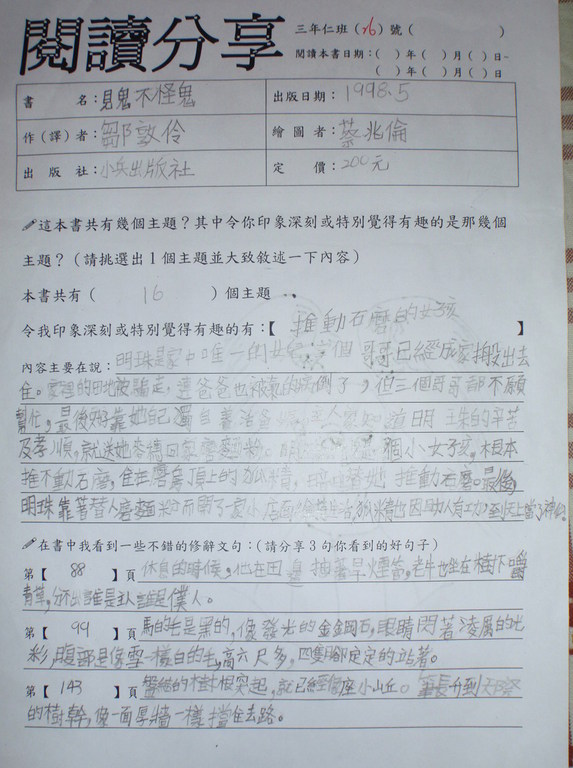 閱讀分享
三年仁班(16)號(                )
閱讀本書日期:(   )年(   )月(   )日-
(   )年(   )月(   )日
書名:見鬼不怪鬼
出版日期:1998.5
作(譯)者:鄒敦伶
繪圖者:蔡兆倫
出版社:小兵出版社
定價:200元
這本書共有幾個主題?其中令你印象深刻或特別覺得有趣的是那幾個
主題?(請挑選出1個主題並大致敘述一下內容)
本書共有(     16     )個主題
令我印象深刻或特別覺得有趣的有:【 推動石磨的女孩 】
內容主要在說:明珠是家中唯一的女 個哥哥已經成家搬出去
住。家裡的田地被騙走,連爸爸也被氣的病倒了,但三個哥哥都不願
幫忙,最後好靠她自己獨自養活爸 主人家知道明珠的辛苦
及孝順,就送她麥稿回家磨麵粉。 個小女孩,根本
推不動石磨,住在磨臬頂上的狐精, 她推動石磨。最後
明珠靠著替人磨麵粉而開了家小店面 生活,狐精也因助人有功,到天上當了神仙。
在書中我看到一些不錯的修辭文句:(請分享3句你看到的好句子)
第【 88 】頁 休息的時候,他在田邊抽著旱煙管,老牛也坐在樹下嚼
青草,分不出誰是主人誰是僕人。
第【 99 】頁 馬的毛是黑的,像發光的金鋼石,眼睛閃著凌厲的光
彩,腹部是像雪一樣白的毛,高六尺多,四隻腳定定的站著。
第【 143 】頁 盤結的樹根突起,就已經像座小山丘。 長
的樹幹,像一面厚牆一樣擋住去路。